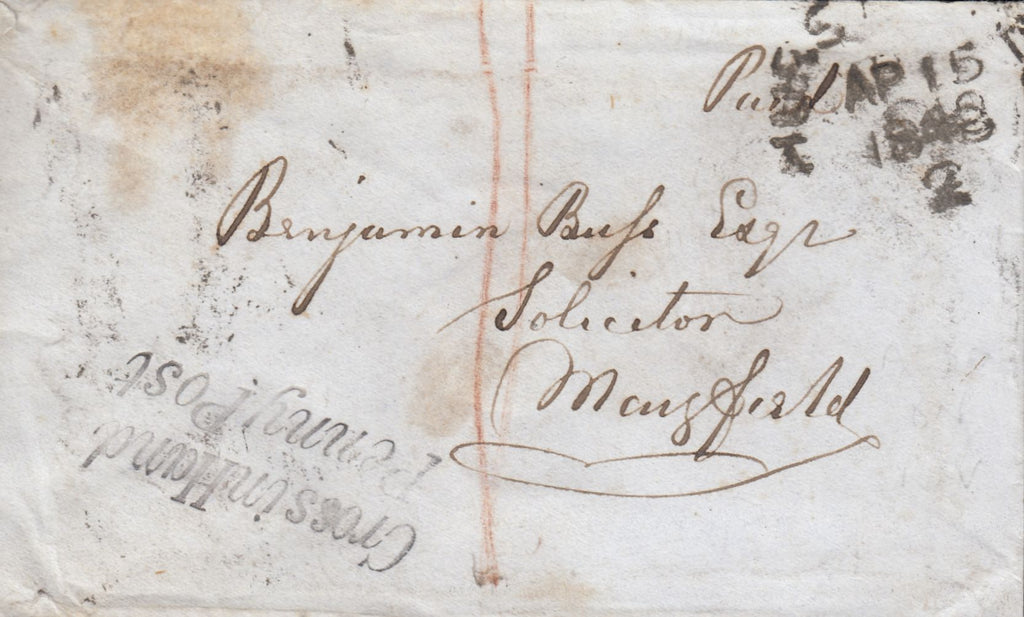 Paid
AP 15
1848
2
Benjamin Buſs Esqr
Solicitor
Mayfield
Cross in Hand
Penny Post